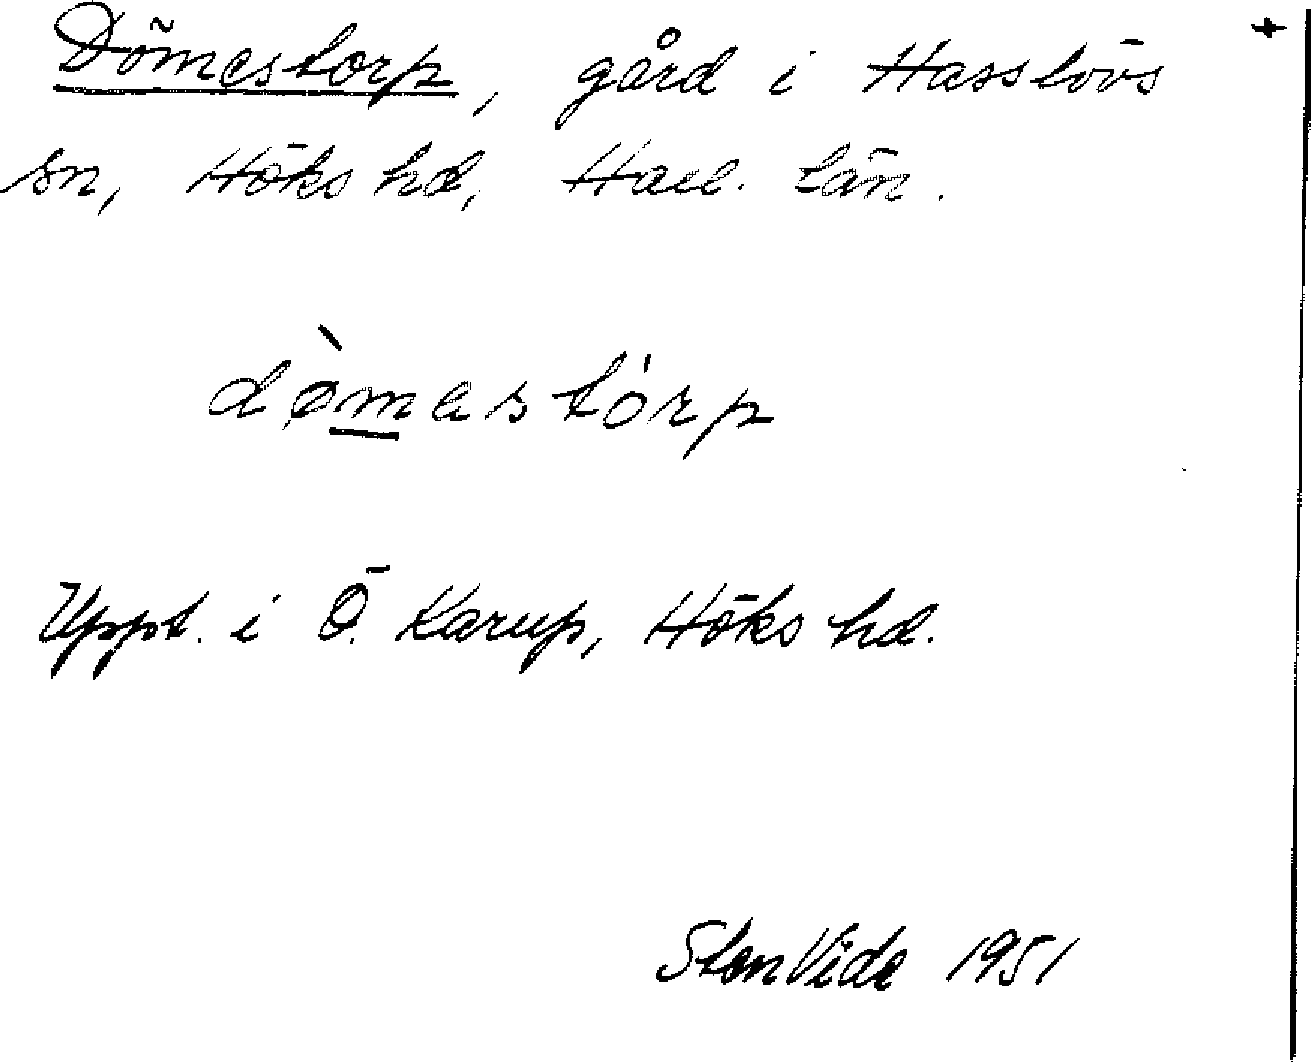 Dömestorp, gård i Hasslövs
sn, Höks hd, Hall. län.
dø̀mestórp
Uppt. i Ö. Karup, Höks hd.
Sten Vide 1951